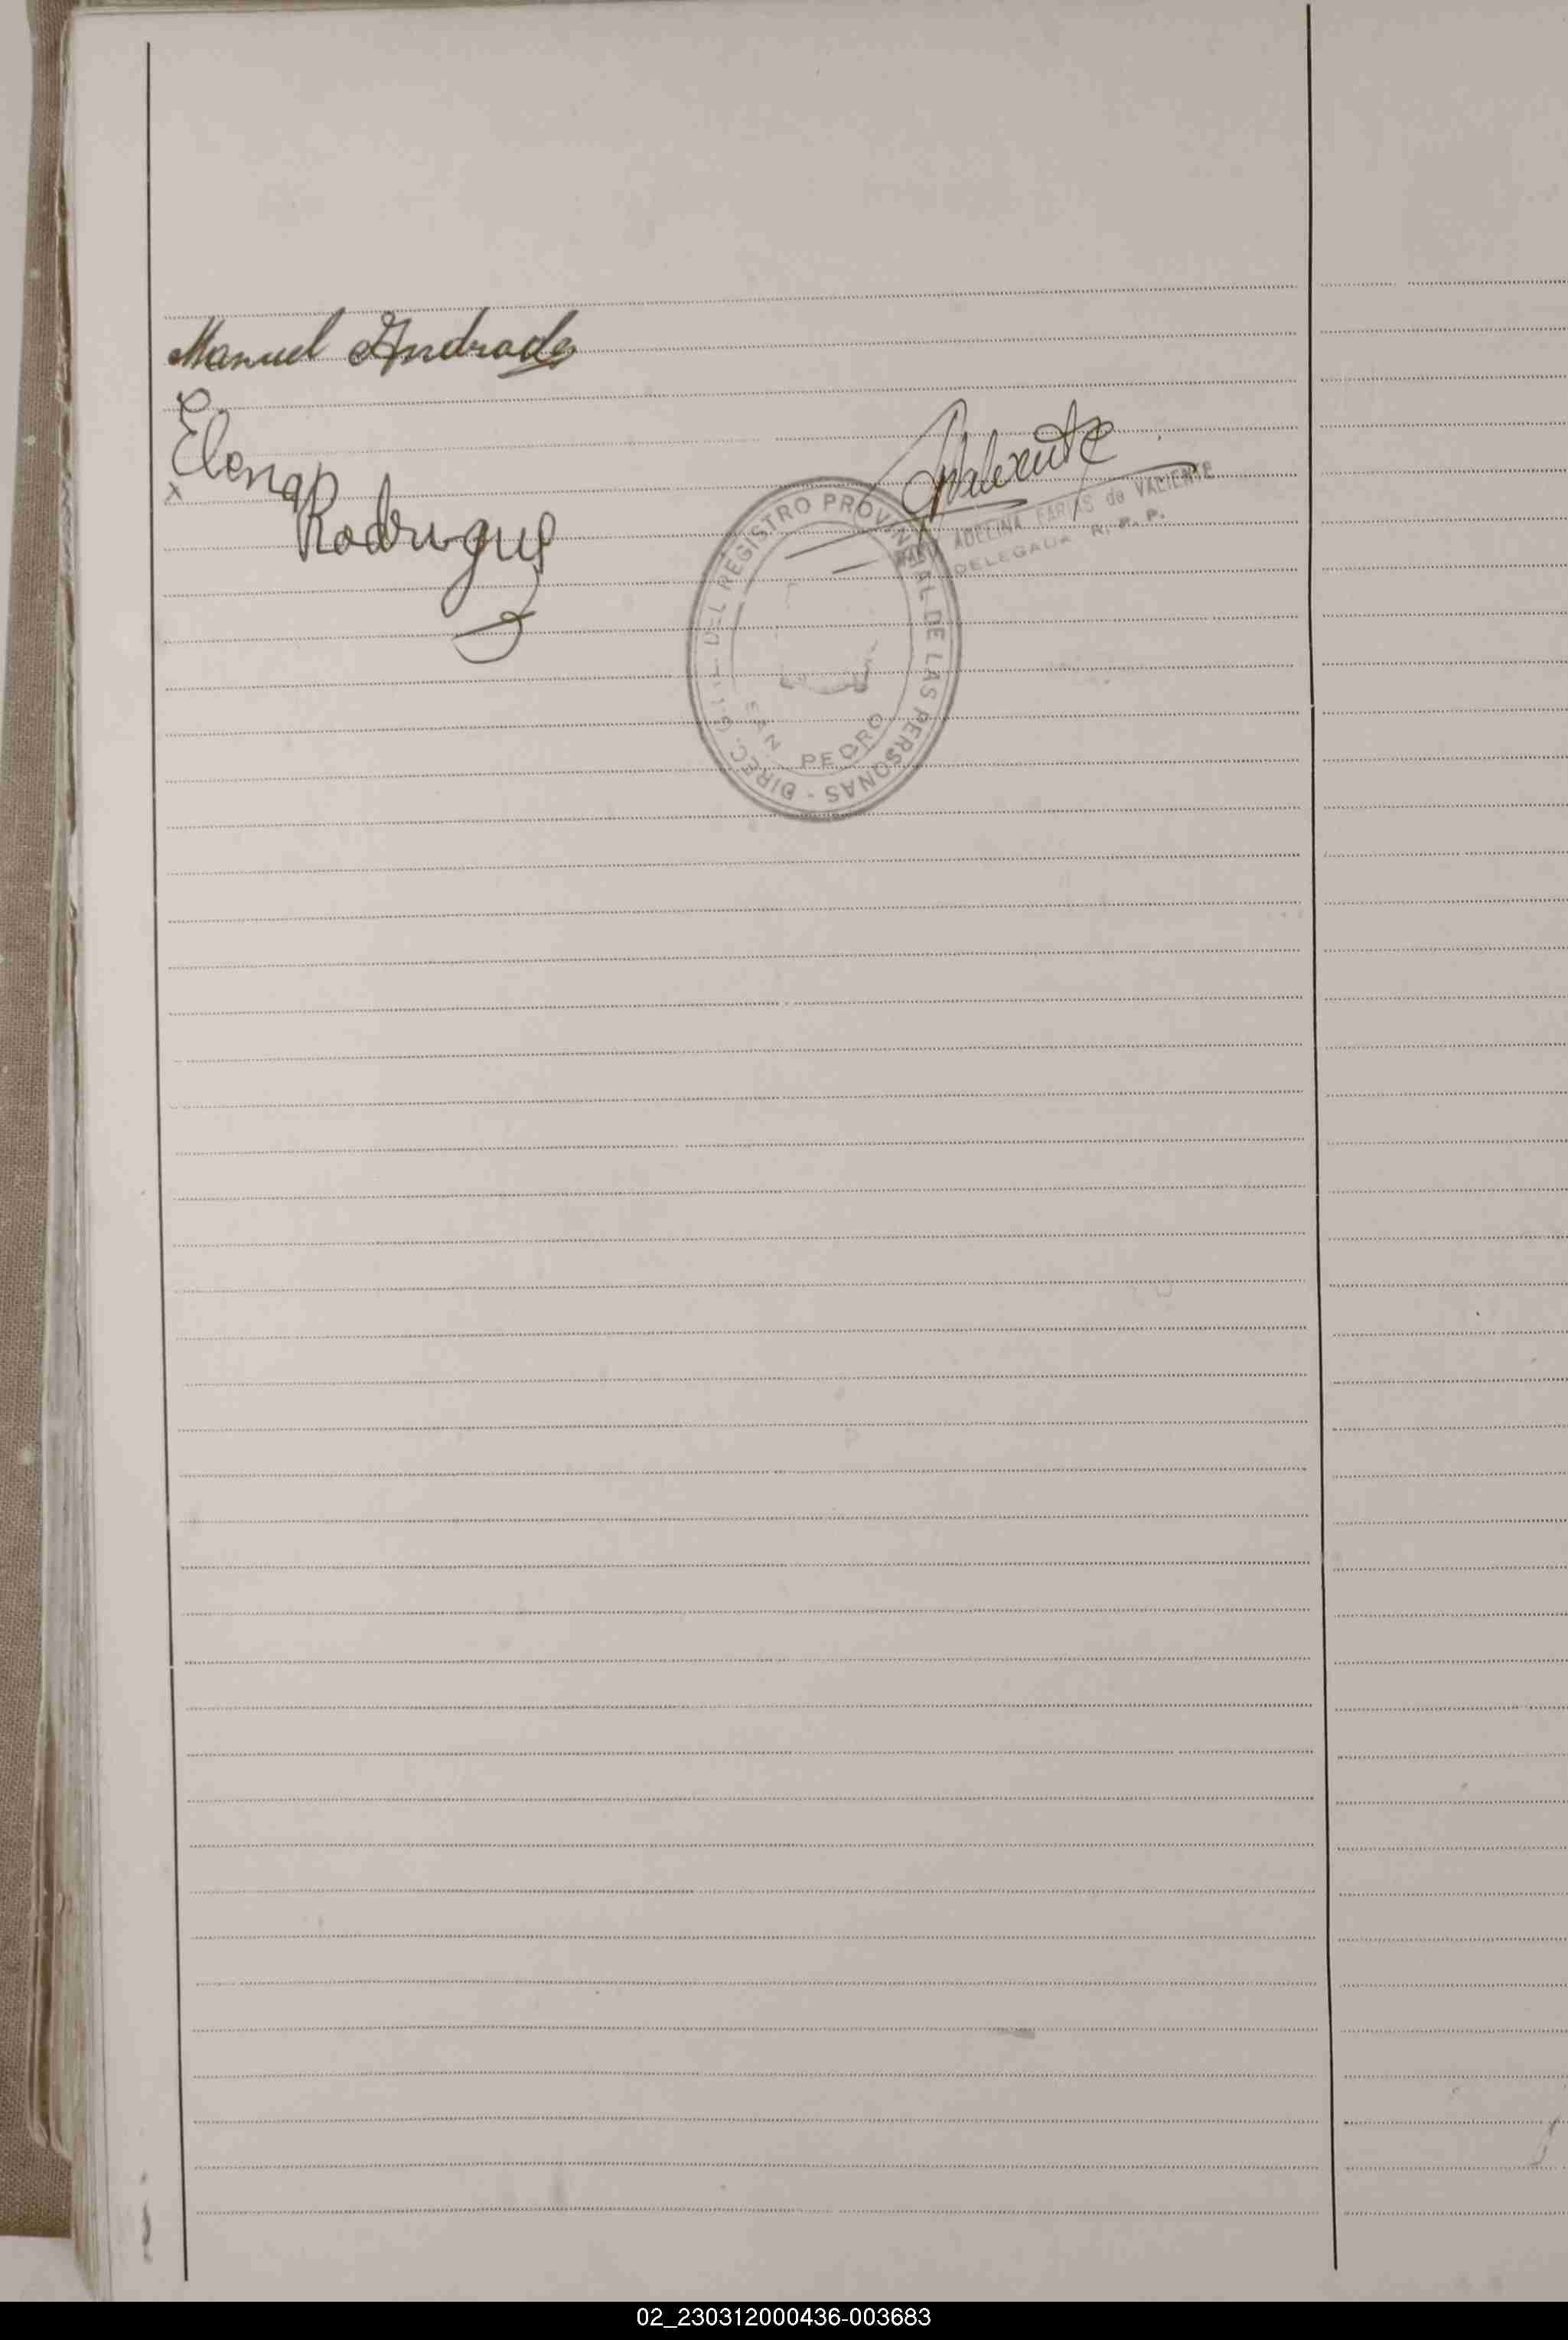 Manuel Andrade
Elena
x
Rodriguez
Valiente
ADELINA FARIAS de VALIENTE
DELEGADA R. P. P.
DIREC. GTL. DEL REGISTRO PROVINCIAL DE LAS PERSONAS -
SAN PEDRO
02_230312000436-003683